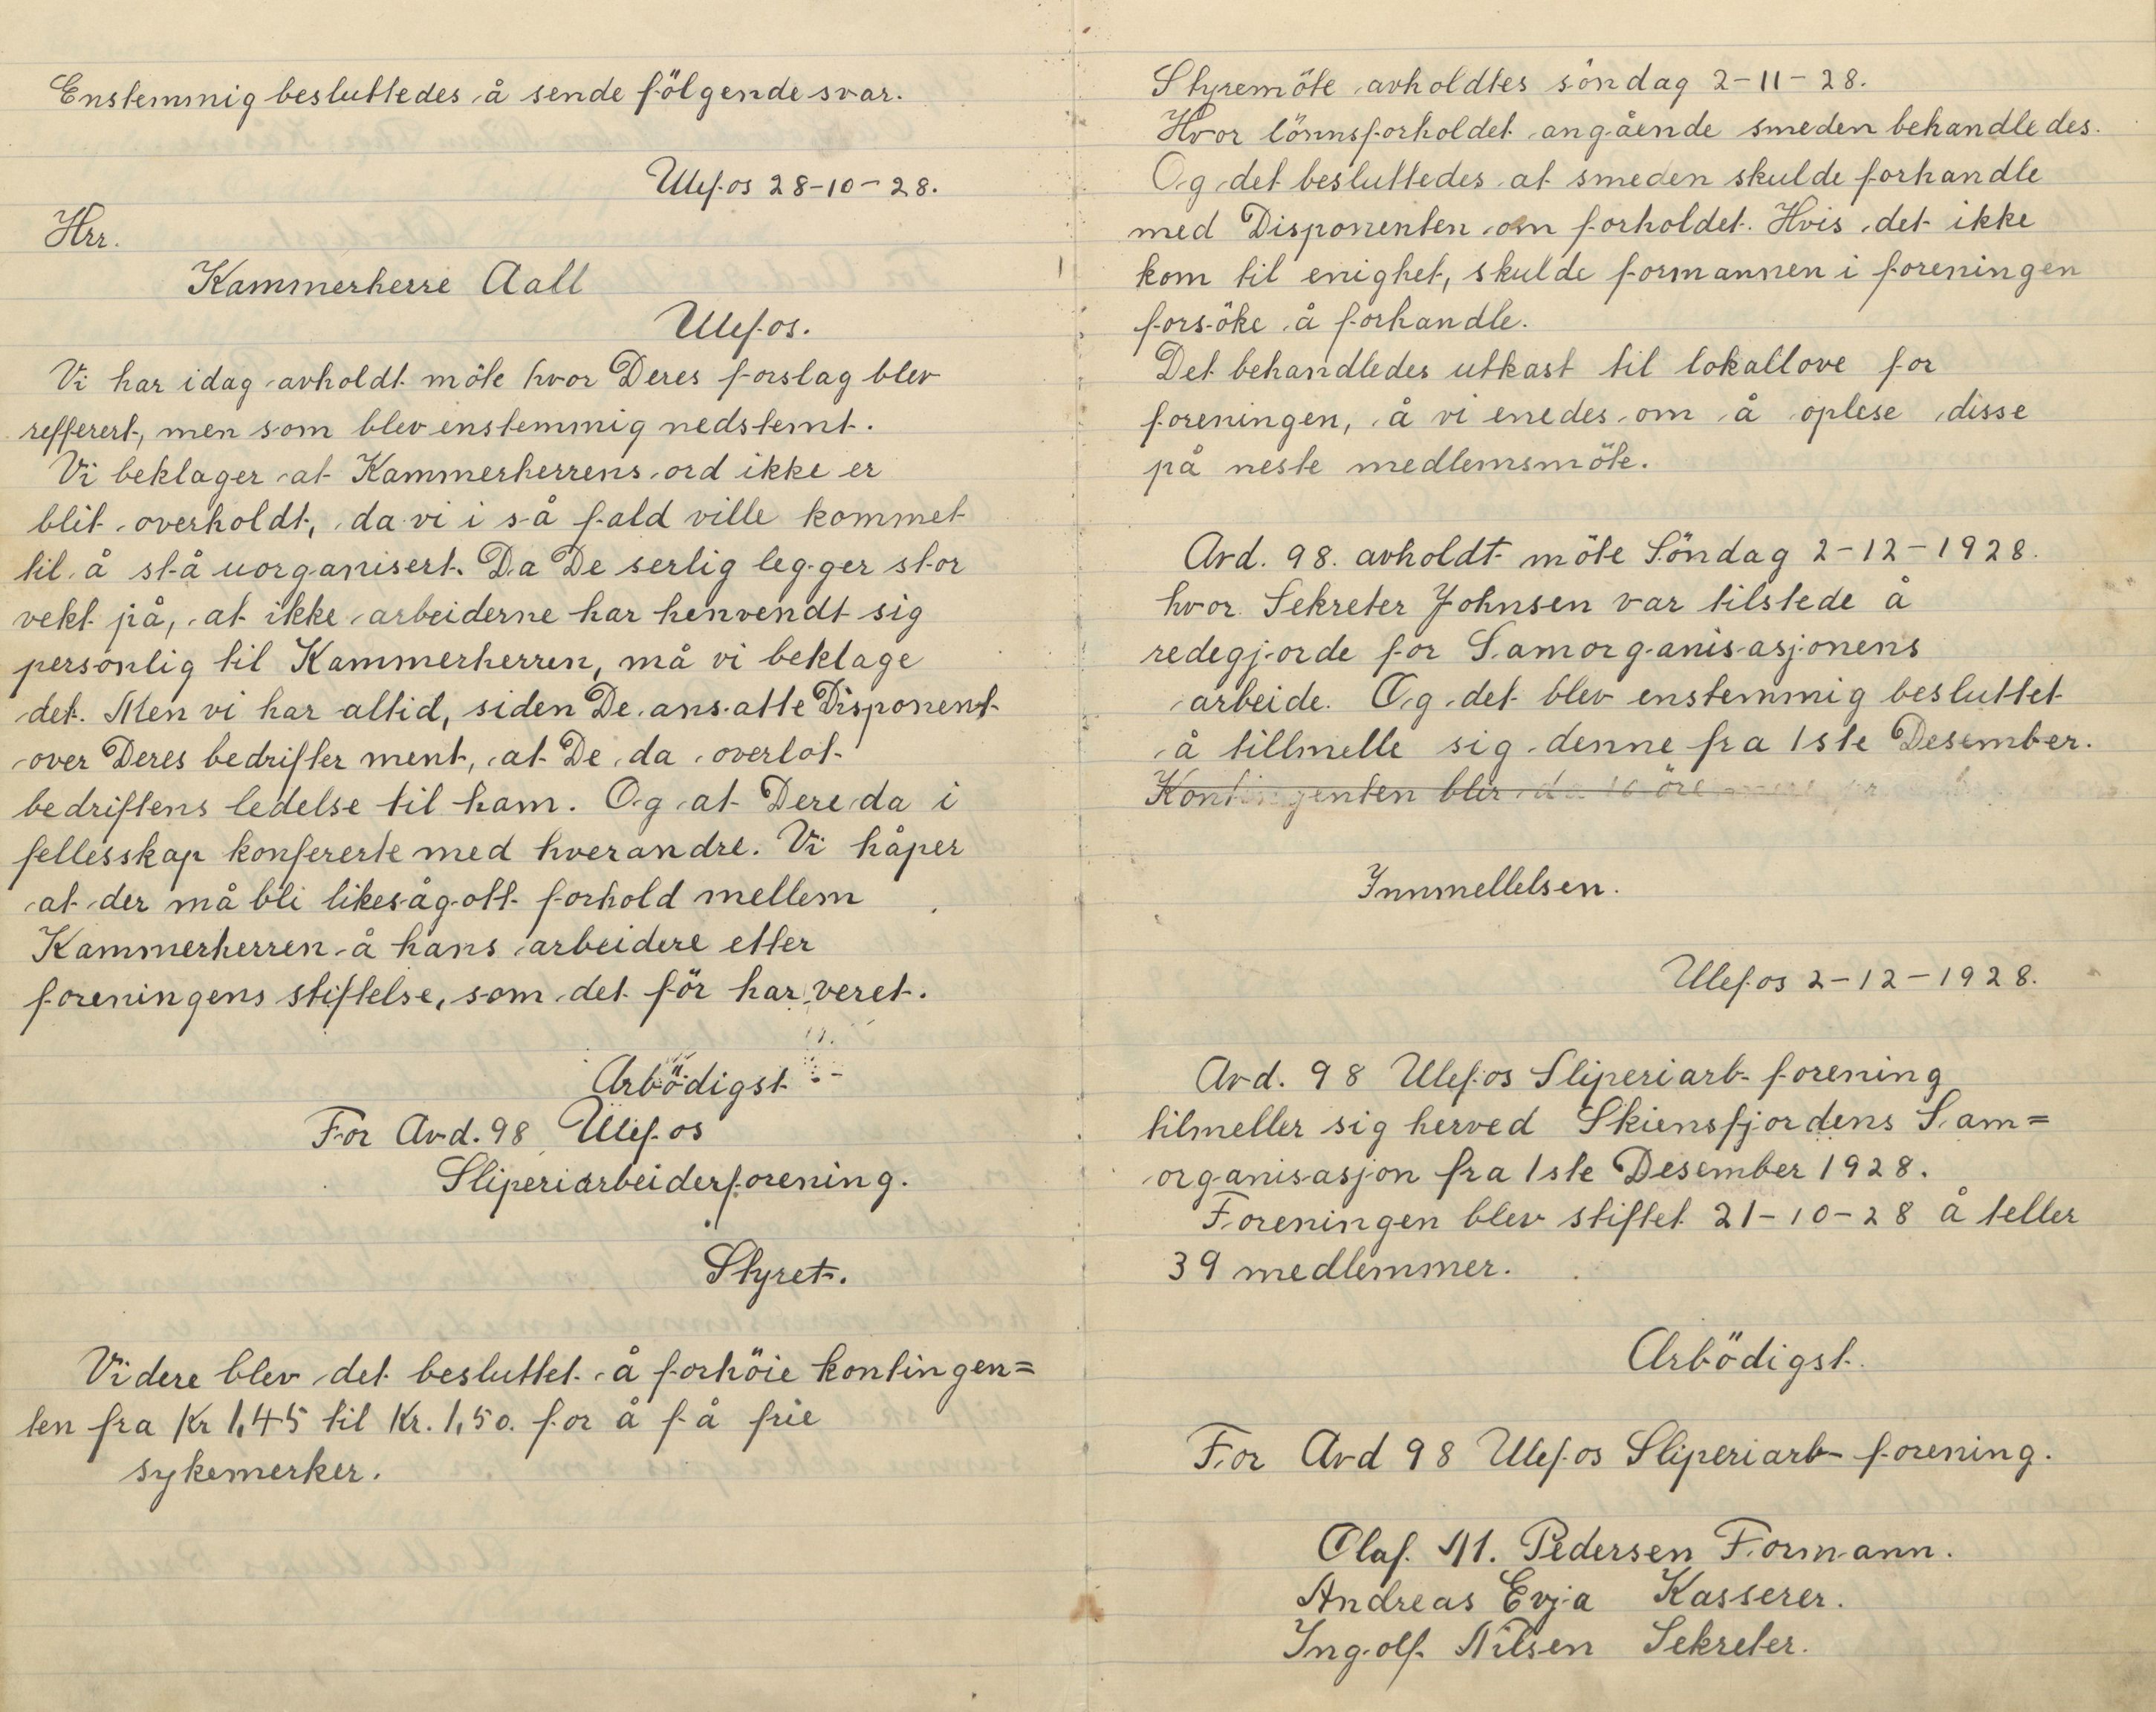 Enstemmig besluttedes å sende fölgende svar.
Ulefos 28-10-28.
Hrr.
Kammerherre Aall
Ulefos.
Vi har idag avholdt möte hvor Deres forslag blev
refferert, men som blev enstemmig nedstemt.
Vi beklager at Kammerherrens ord ikke er
blit overholdt, da vi i så fald ville kommet
til å stå uorganisert. Da De serlig legger stor
vekt på, at ikke arbeiderne har henvendt sig
personlig til Kammerherren, må vi beklage
det. Men vi har altid, siden De ansatte Disponent
over Deres bedrifter ment, at De da overlot
bedriftens ledelse til ham. Og at Dere da i
fellesskap konfererte med hverandre. Vi håper
at der må bli likesågott forhold mellem
Kammerherren å hans arbeidere etter
foreningens stiftelse, som det för har veret.
Arbödigst
For Avd. 98 Ulefos
Sliperiarbeiderforening.
Styret.
Videre blev det besluttet å forhöie kontingen=
ten fra Kr 1,45 til Kr. 1,50. for å få frie
sykemerker.
Styremöte avholdtes söndag 2-11-28.
Hvor lönnsforholdet angående smeden behandledes.
Og det besluttedes at smeden skulde forhandle
med Disponenten om forholdet. Hvis det ikke
kom til enighet, skulde formannen i foreningen
forsöke å forhandle.
Det behandledes utkast til lokallove for
foreningen, å vi enedes om å oplese disse
på neste medlemsmöte.
Avd. 98. avholdt möte Söndag 2-12-1928.
hvor Sekreter Johnsen var tilstede å
redegjorde for Samorganisasjonens
arbeide. Og det blev enstemmig besluttet
å tillmelle sig denne fra 1ste Desember.
Kontingenten blir da 10 öre
Innmellelsen.
Ulefos 2-12-1928.
Avd. 98 Ulefos Sliperiarb- forening
tilmeller sig herved Skiensfjordens Sam=
organisasjon fra 1ste Desember 1928.
Foreningen blev stiftet 21-10-28 å teller
39 medlemmer.
Arbödigst.
For Avd 98 Ulefos Sliperiarb- forening.
Olaf. M. Pedersen Formann.
Andreas Evja Kasserer.
Ingolf Nilsen Sekreter.